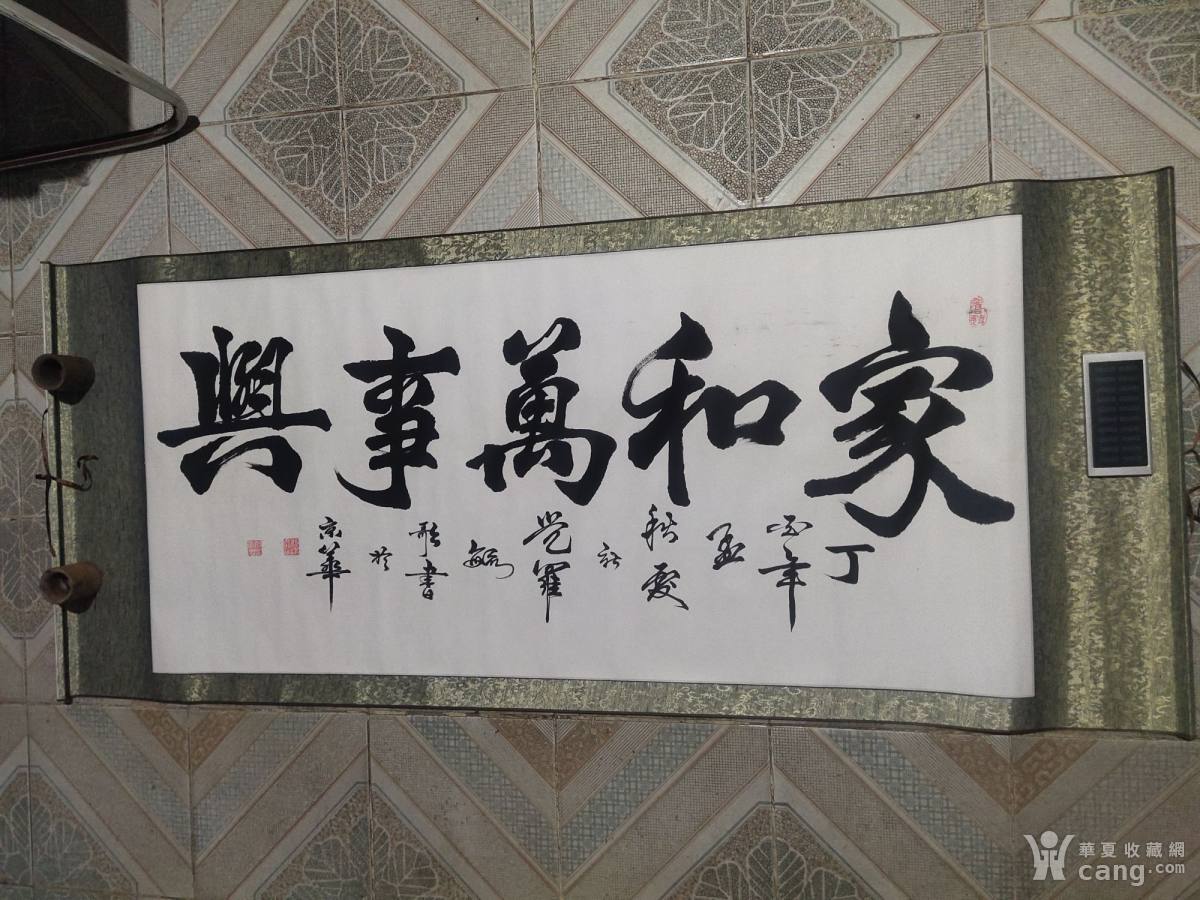 家和萬事興
丁
酉年
孟
秋愛
新
覺羅
毓
歌書
於
京華
華夏收藏網
cang.com